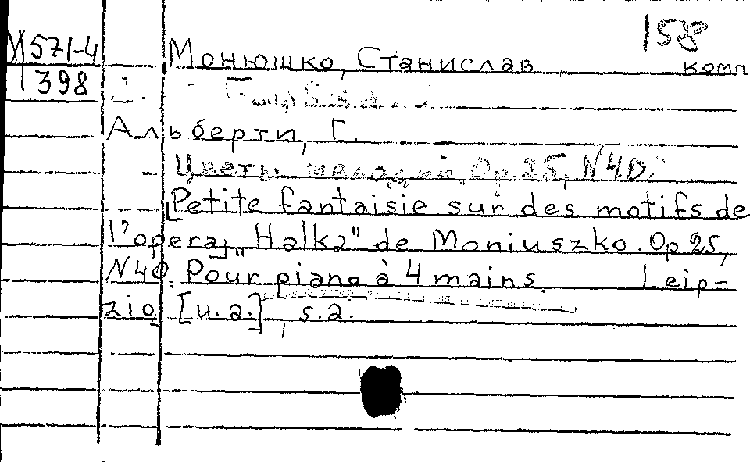 158
М571-4
398
Монюшко, Станислав
комп
Альберти, Г.
Цветы мелодий. Op. 25, N40.
Petite fantaisie sur des motifs de
l'opera „Halka" de Moniuszko. Op 25,
N40. Pour piano à 4 mains. Leip-
zig [u.a.], s.a.